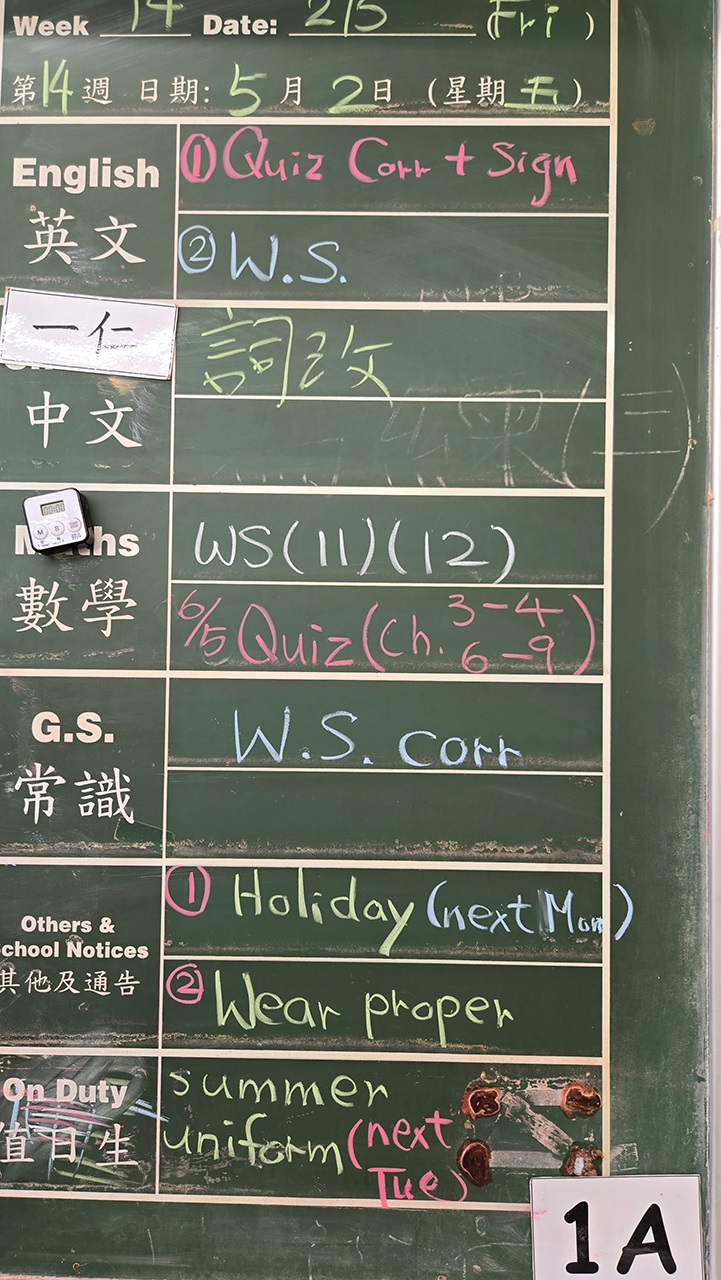 Week 14 Date: 2/5 (Fri)
第14週 日期: 5月2日 (星期五)
English
英文
① Quiz Corr + Sign
② W.S.
一仁
中文
詞改
(三)
Maths
數學
WS(11)(12)
6/5 Quiz (Ch. 3-4
6-9)
G.S.
常識
W.S. corr
Others &
School Notices
其他及通告
① Holiday (next Mon)
② Wear proper
On Duty
值日生
summer
uniform (next
Tue)
1A
00:00
M S